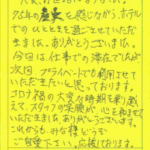 75年の歴史を感じながら、ホテル
でのひとときを過ごさせていただき
ました。ありがとうございました。
今回は仕事での滞在でしたが
次回、プライベートでも利用させて
いただきたいと思っております。
コロナ禍の大変な時期を乗り越
えて、スタッフの笑顔
いただきました。ありがとうございます。
これからも、みな様どうぞ
ご自愛下さい。応援しております。